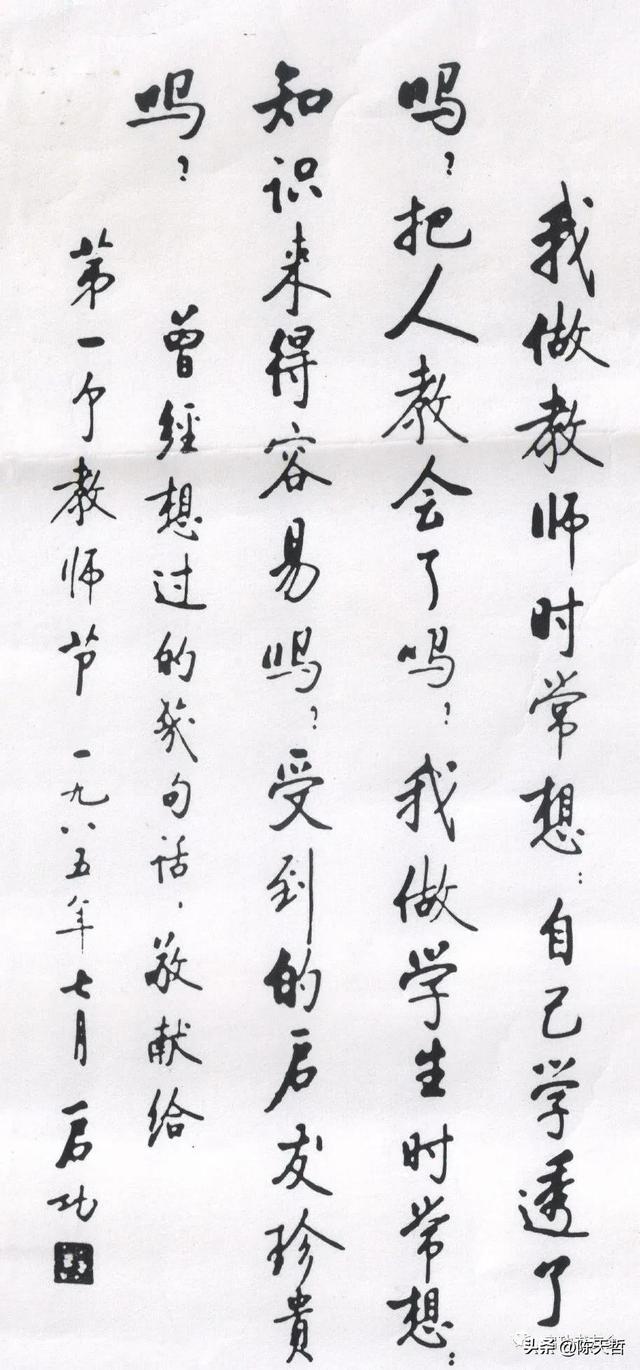 我做教师时常想：自己学透了
吗？把人教会了吗？我做学生时常想：
知识来得容易吗？受到的启发珍贵
吗？
曾经想过的几句话，敬献给
第一个教师节 一九八五年七月 启功
头条@陈天哲